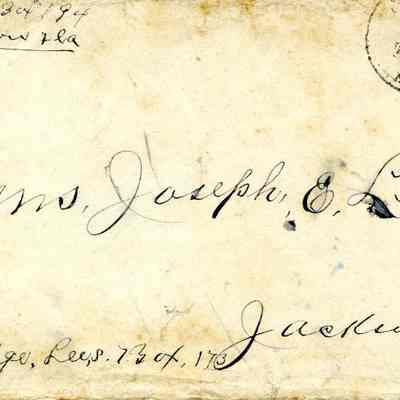 Box 194
Fla
ms, Joseph, E. L
Jacks
ge, Lee,s. Box, 173